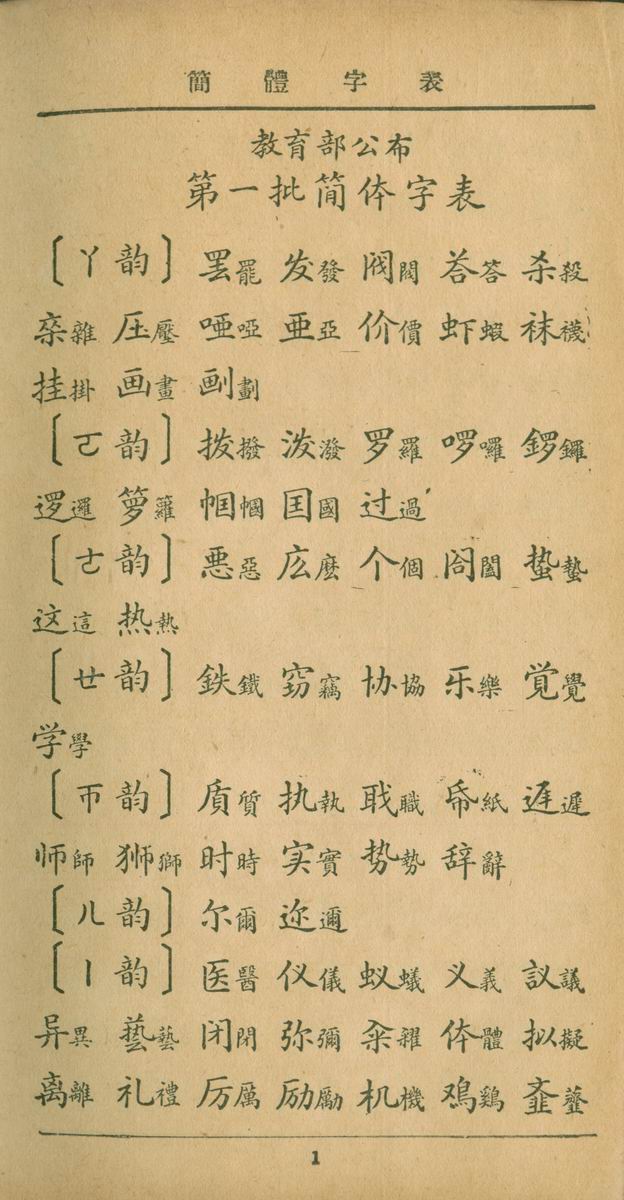 簡體字表
教育部公布
第一批简体字表
〔ㄚ韵〕 罢罷 发發 阀閥 荅答 杀殺
杂雜 压壓 哑啞 亜亞 价價 虾蝦 袜襪
挂掛 画畫 劃
〔ㄛ韵〕 拨撥 泼潑 罗羅 啰囉 鑼
逻邏 箩籮 帼幗 囯國 过過
〔ㄜ韵〕 悪惡 庅麽 个個 閤闔 蛰蟄
这這 热熱
〔ㄝ韵〕 鉄鐵 窃竊 协協 乐樂 覚覺
学學
〔ㄭ韵〕 质質 执執 职職 帋紙 迟遲
师師 狮獅 时時 实實 势勢 辞辭
〔ㄦ韵〕 尔爾 迩邇
〔ㄧ韵〕 医醫 仪儀 蚁蟻 义義 议議
异異 藝 闭閉 弥彌 籴糴 体體 拟擬
离離 礼禮 厉厲 励勵 机機 鸡鷄 齑虀
1